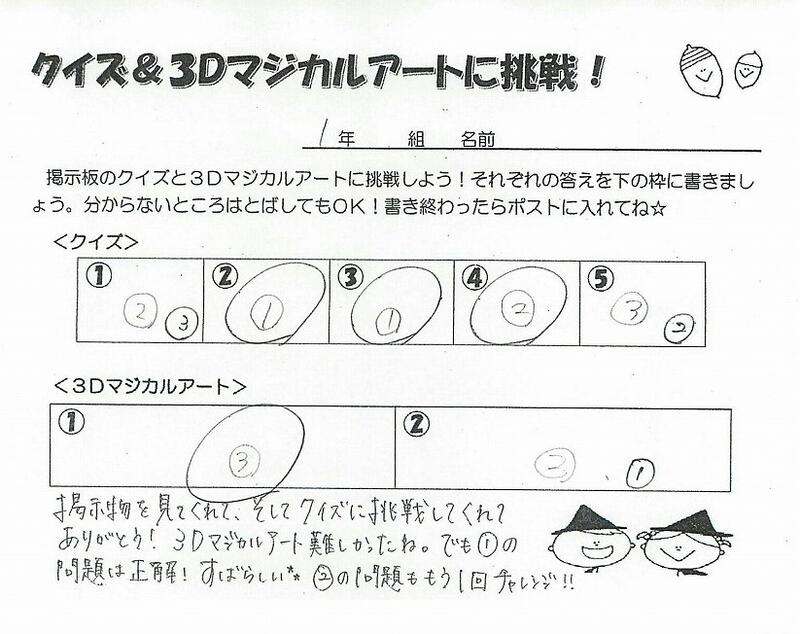 クイズ＆3Dマジカルアートに挑戦！
1年　組　名前
掲示板のクイズと３Ｄマジカルアートに挑戦しよう！それぞれの答えを下の枠に書きまし
ょう。分からないところはとばしてもＯＫ！書き終わったらポストに入れてね☆
＜クイズ＞
① ② ③ ④ ⑤
② ③ ① ① ② ③ ②
＜３Ｄマジカルアート＞
① ②
③ ② ①
掲示物を見てくれて、そしてクイズに挑戦してくれて
ありがとう！３Ｄマジカルアート難しかったね。でも①の
問題は正解！すばらしい** ②の問題ももう1回チャレンジ!!